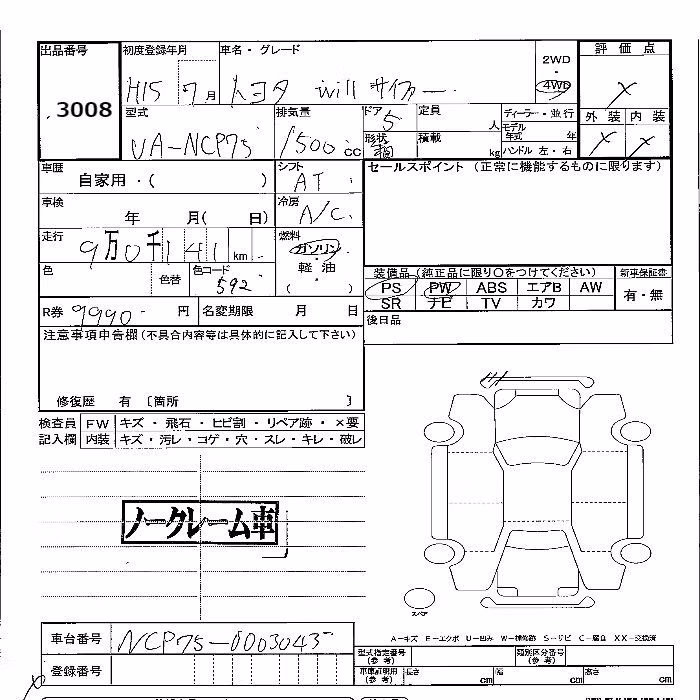 出品番号 初度登録年月 車名・グレード 2WD ・ 4WD 評価点
3008 H15 7月 トヨタ will サイファー X
型式 排気量 ドア 定員 ディーラー・並行 外装 内装
UA-NCP75 1500cc 5 人 モデル年式 年 X X
形状 積載 kg ハンドル 左・右
車歴 自家用・( ) シフト AT セールスポイント(正常に機能するものに限ります)
車検 年 月( 日) 冷房 A/C
走行 9万0千141km 燃料 ガソリン
軽・油
( ・ )
色 色替 色コード 592
装備品(純正品に限り○をつけてください) 新車保証書
PS PW ABS エアB AW 有・無
SR ナビ TV カワ
R券 9990- 円 名変期限 月 日
後日品
注意事項申告欄(不具合内容等は具体的に記入して下さい)
修復歴 有 〔箇所 〕
検査員 FW キズ・飛石・ヒビ割・リペア跡・×要
記入欄 内装 キズ・汚レ・コゲ・穴・スレ・キレ・破レ
ノークレーム車
スペア
A-キズ E-エクボ U-凹み W-補修跡 S-サビ C-腐食 XX-交換済
車台番号 NCP75-0003043
登録番号
型式指定番号(参考) 類別区分番号(参考)
車庫証明用(参考) 長さ cm 幅 cm 高さ cm